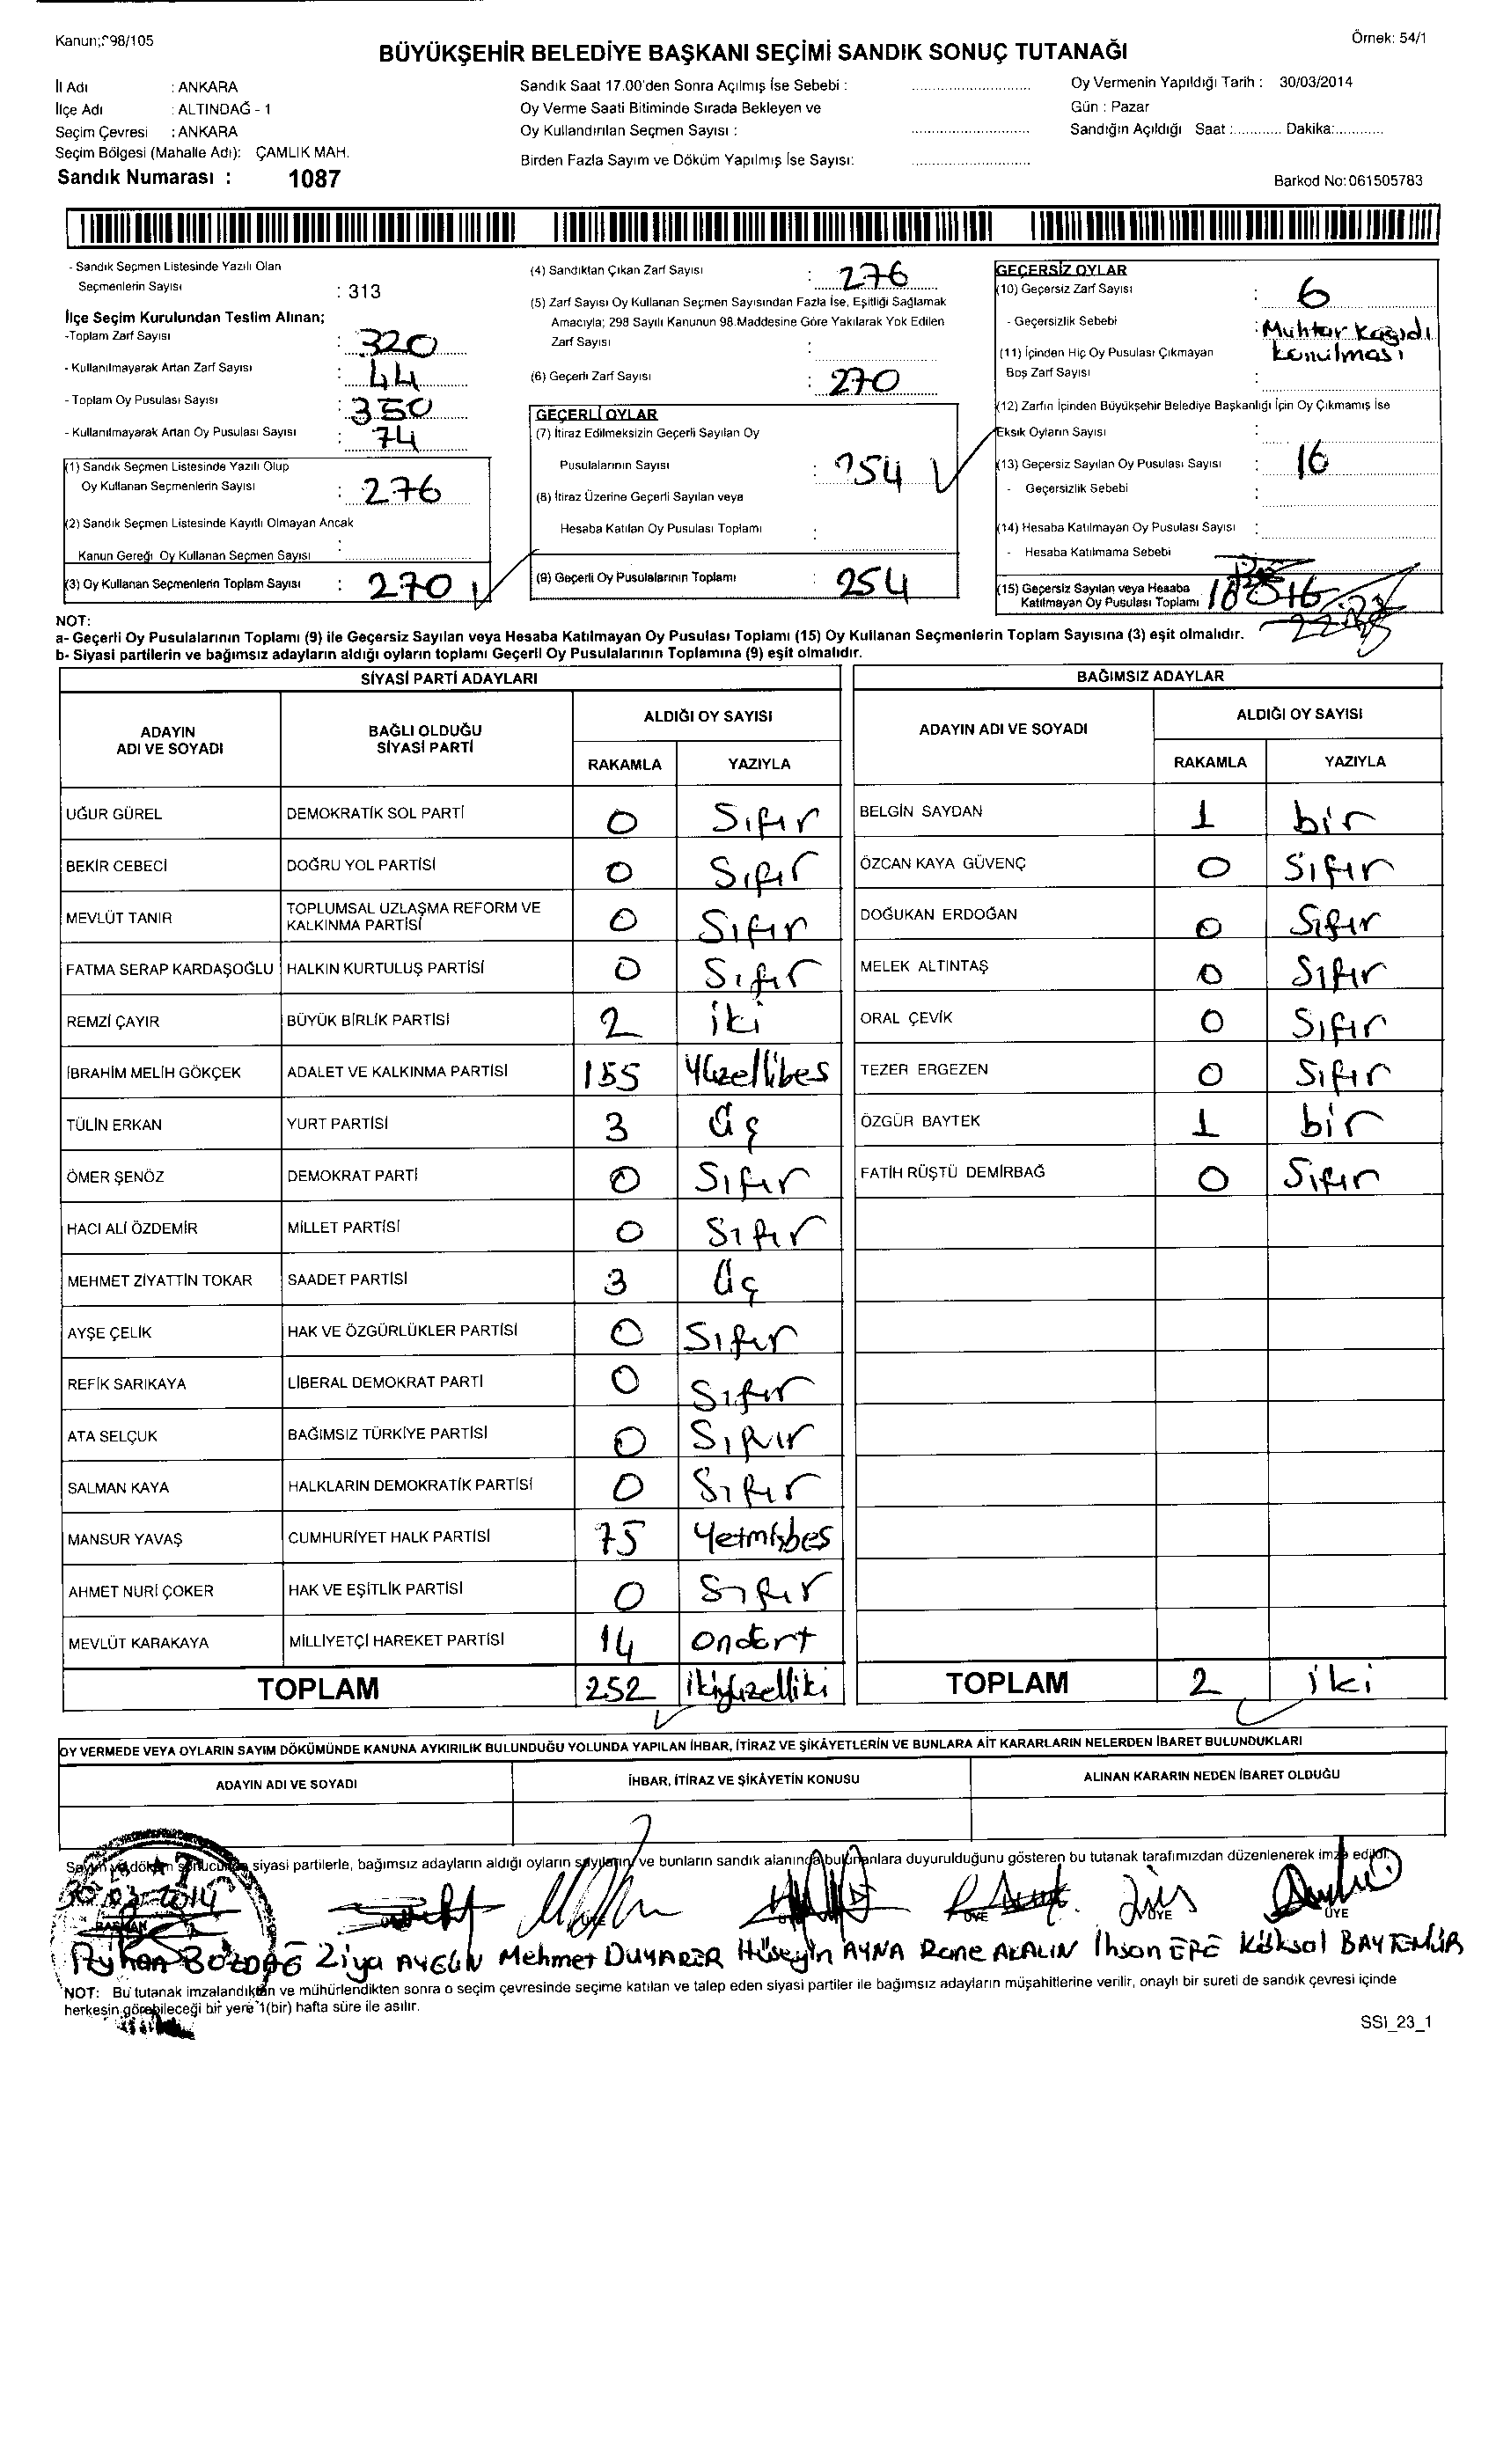 Kanun: 298/105
Örnek: 54/1
BÜYÜKŞEHİR BELEDİYE BAŞKANI SEÇİMİ SANDIK SONUÇ TUTANAĞI
İl Adı : ANKARA
İlçe Adı : ALTINDAĞ - 1
Seçim Çevresi : ANKARA
Seçim Bölgesi (Mahalle Adı): ÇAMLIK MAH.
Sandık Numarası : 1087
Sandık Saat 17.00'den Sonra Açılmış İse Sebebi :
Oy Verme Saati Bitiminde Sırada Bekleyen ve
Oy Kullandırılan Seçmen Sayısı :
Birden Fazla Sayım ve Döküm Yapılmış İse Sayısı:
Oy Vermenin Yapıldığı Tarih : 30/03/2014
Gün : Pazar
Sandığın Açıldığı Saat :............ Dakika:............
Barkod No:061505783
- Sandık Seçmen Listesinde Yazılı Olan
Seçmenlerin Sayısı : 313
İlçe Seçim Kurulundan Teslim Alınan;
-Toplam Zarf Sayısı : 320
- Kullanılmayarak Artan Zarf Sayısı : 44
- Toplam Oy Pusulası Sayısı : 350
- Kullanılmayarak Artan Oy Pusulası Sayısı : 74
(1) Sandık Seçmen Listesinde Yazılı Olup
Oy Kullanan Seçmenlerin Sayısı : 276
(2) Sandık Seçmen Listesinde Kayıtlı Olmayan Ancak
Kanun Gereği Oy Kullanan Seçmen Sayısı :
(3) Oy Kullanan Seçmenlerin Toplam Sayısı : 270
(4) Sandıktan Çıkan Zarf Sayısı : 276
(5) Zarf Sayısı Oy Kullanan Seçmen Sayısından Fazla İse, Eşitliği Sağlamak
Amacıyla; 298 Sayılı Kanunun 98.Maddesine Göre Yakılarak Yok Edilen
Zarf Sayısı :
(6) Geçerli Zarf Sayısı : 270
GEÇERLİ OYLAR
(7) İtiraz Edilmeksizin Geçerli Sayılan Oy
Pusulalarının Sayısı : 254
(8) İtiraz Üzerine Geçerli Sayılan veya
Hesaba Katılan Oy Pusulası Toplamı :
(9) Geçerli Oy Pusulalarının Toplamı : 254
GEÇERSİZ OYLAR
(10) Geçersiz Zarf Sayısı : 6
- Geçersizlik Sebebi : Muhtar Kağıdı
konulması
(11) İçinden Hiç Oy Pusulası Çıkmayan
Boş Zarf Sayısı :
(12) Zarfın İçinden Büyükşehir Belediye Başkanlığı İçin Oy Çıkmamış İse
Eksik Oyların Sayısı :
(13) Geçersiz Sayılan Oy Pusulası Sayısı : 16
- Geçersizlik Sebebi :
(14) Hesaba Katılmayan Oy Pusulası Sayısı :
- Hesaba Katılmama Sebebi
(15) Geçersiz Sayılan veya Hesaba
Katılmayan Oy Pusulası Toplamı 16
NOT:
a- Geçerli Oy Pusulalarının Toplamı (9) ile Geçersiz Sayılan veya Hesaba Katılmayan Oy Pusulası Toplamı (15) Oy Kullanan Seçmenlerin Toplam Sayısına (3) eşit olmalıdır.
b- Siyasi partilerin ve bağımsız adayların aldığı oyların toplamı Geçerli Oy Pusulalarının Toplamına (9) eşit olmalıdır.
SİYASİ PARTİ ADAYLARI
ADAYIN ADI VE SOYADI BAĞLI OLDUĞU SİYASİ PARTİ ALDIĞI OY SAYISI
RAKAMLA YAZIYLA
UĞUR GÜREL DEMOKRATİK SOL PARTİ 0 Sıfır
BEKİR CEBECİ DOĞRU YOL PARTİSİ 0 Sıfır
MEVLÜT TANIR TOPLUMSAL UZLAŞMA REFORM VE KALKINMA PARTİSİ 0 Sıfır
FATMA SERAP KARDAŞOĞLU HALKIN KURTULUŞ PARTİSİ 0 Sıfır
REMZİ ÇAYIR BÜYÜK BİRLİK PARTİSİ 2 iki
İBRAHİM MELİH GÖKÇEK ADALET VE KALKINMA PARTİSİ 155 Yüzellibes
TÜLİN ERKAN YURT PARTİSİ 3 üç
ÖMER ŞENÖZ DEMOKRAT PARTİ 0 Sıfır
HACI ALİ ÖZDEMİR MİLLET PARTİSİ 0 Sıfır
MEHMET ZİYATTİN TOKAR SAADET PARTİSİ 3 üç
AYŞE ÇELİK HAK VE ÖZGÜRLÜKLER PARTİSİ 0 Sıfır
REFİK SARIKAYA LİBERAL DEMOKRAT PARTİ 0 Sıfır
ATA SELÇUK BAĞIMSIZ TÜRKİYE PARTİSİ 0 Sıfır
SALMAN KAYA HALKLARIN DEMOKRATİK PARTİSİ 0 Sıfır
MANSUR YAVAŞ CUMHURİYET HALK PARTİSİ 75 Yetmişbes
AHMET NURİ ÇOKER HAK VE EŞİTLİK PARTİSİ 0 Sıfır
MEVLÜT KARAKAYA MİLLİYETÇİ HAREKET PARTİSİ 14 ondört
TOPLAM 252 ikiyüzelliiki
BAĞIMSIZ ADAYLAR
ADAYIN ADI VE SOYADI ALDIĞI OY SAYISI
RAKAMLA YAZIYLA
BELGİN SAYDAN 1 bir
ÖZCAN KAYA GÜVENÇ 0 Sıfır
DOĞUKAN ERDOĞAN 0 Sıfır
MELEK ALTINTAŞ 0 Sıfır
ORAL ÇEVİK 0 Sıfır
TEZER ERGEZEN 0 Sıfır
ÖZGÜR BAYTEK 1 bir
FATİH RÜŞTÜ DEMİRBAĞ 0 Sıfır
TOPLAM 2 iki
OY VERMEDE VEYA OYLARIN SAYIM DÖKÜMÜNDE KANUNA AYKIRILIK BULUNDUĞU YOLUNDA YAPILAN İHBAR, İTİRAZ VE ŞİKÂYETLERİN VE BUNLARA AİT KARARLARIN NELERDEN İBARET BULUNDUKLARI
ADAYIN ADI VE SOYADI İHBAR, İTİRAZ VE ŞİKÂYETİN KONUSU ALINAN KARARIN NEDEN İBARET OLDUĞU
Sayım ve döküm sonucunda siyasi partilerle, bağımsız adayların aldığı oyların sayılarını ve bunların sandık alanında bulunanlara duyurulduğunu gösteren bu tutanak tarafımızdan düzenlenerek imza edildi.
30.03.2014
BAŞKAN ÜYE ÜYE ÜYE
Ayhan BOZDAĞ Ziya AYGÜN Mehmet DUYARER Hüseyin AYNA Rane AKALIN İhsan EFE Köksal BAYTEMÜR
NOT: Bu tutanak imzalandıktan ve mühürlendikten sonra o seçim çevresinde seçime katılan ve talep eden siyasi partiler ile bağımsız adayların müşahitlerine verilir, onaylı bir sureti de sandık çevresi içinde
herkesin görebileceği bir yere 1(bir) hafta süre ile asılır.
SSI_23_1